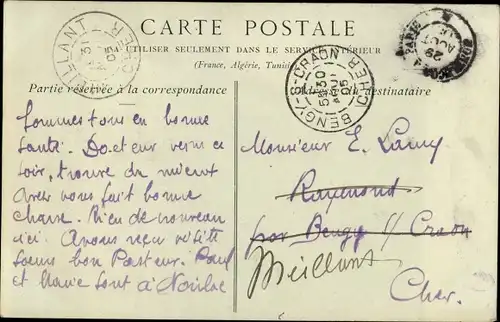 CARTE POSTALE
A UTILISER SEULEMENT DANS LE SERVICE INTÉRIEUR
(France, Algérie, Tunisie
Partie réservée à la correspondance
Adresse du destinataire
MEILLANT
CHER
31
05
BENGY-S-CRAON
(CHER)
30
AOU
05
PARIS
29
AOUT
Sommes tous en bonne
santé. Docteur venu ce
soir, trouve du mieux
Avez vous fait bonne
chasse. Rien de nouveau
ici. Avons reçu visite
soeurs bon Pasteur. Paul
et Marie sont à Noirlac
Monsieur E. Lamy
Raymond
par Bengy s/ Craon
Meillant
Cher.